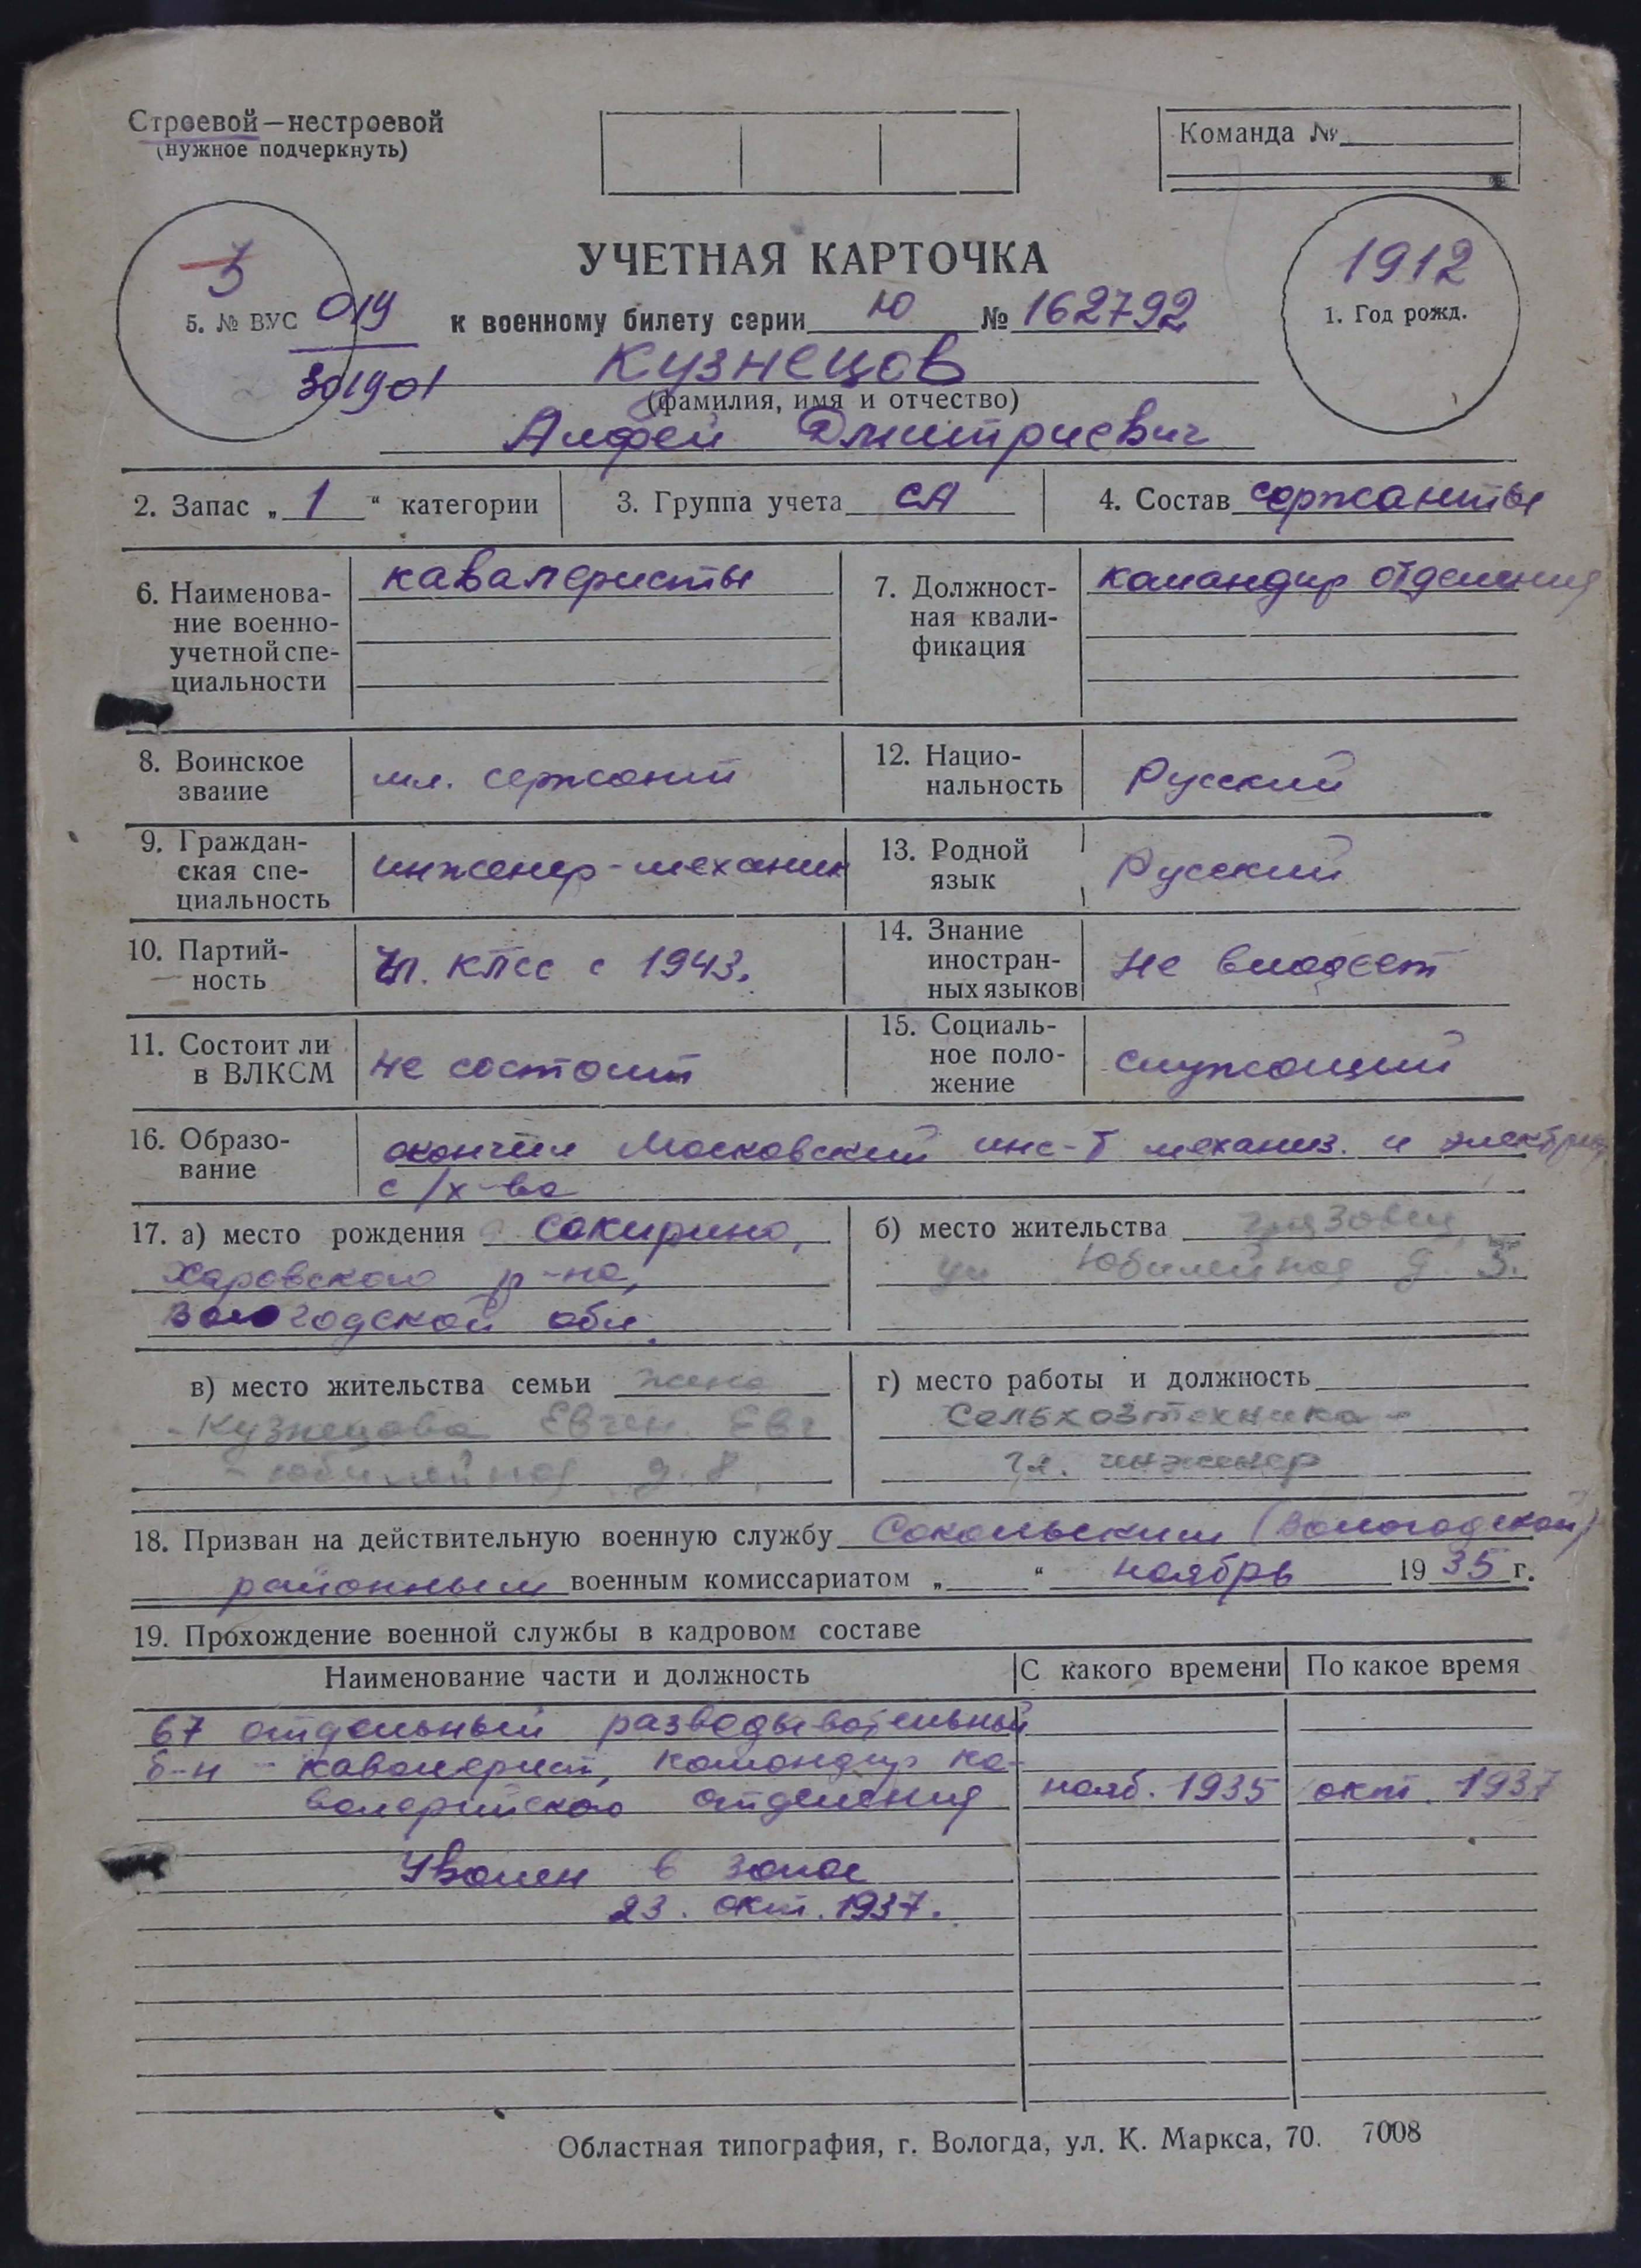 Строевой—нестроевой
(нужное подчеркнуть)
Команда №
3
5. № ВУС 019
301901
УЧЕТНАЯ КАРТОЧКА
к военному билету серии Ю № 162792
1912
1. Год рожд.
Кузнецов
(фамилия, имя и отчество)
Алфей Дмитриевич
2. Запас „ 1 “ категории
3. Группа учета СА
4. Состав сержанты
6. Наименова-
ние военно-
учетной спе-
циальности
кавалеристы
7. Должност-
ная квали-
фикация
командир отделения
8. Воинское
звание
мл. сержант
12. Нацио-
нальность
Русский
9. Граждан-
ская спе-
циальность
инженер-механик
13. Родной
язык
Русский
10. Партий-
ность
Чл. КПСС с 1943.
14. Знание
иностран-
ных языков
не владеет
11. Состоит ли
в ВЛКСМ
не состоит
15. Социаль-
ное поло-
жение
служащий
16. Образо-
вание
окончил Московский инс-т механиз. и электриф
с/х-ва
17. а) место рождения Сакирино,
Харовского р-на,
Вологодской обл.
б) место жительства Грязовец
ул Юбилейная д. 5.
в) место жительства семьи жена
- Кузнецова Евген. Евг
- юбилейная д. 8
г) место работы и должность
Сельхозтехника -
гл. инженер
18. Призван на действительную военную службу Сокольским (Вологодской)
районным военным комиссариатом „ “ ноябрь 1935 г.
19. Прохождение военной службы в кадровом составе
Наименование части и должность
С какого времени
По какое время
67 отдельный разведывательный
б-н - кавалерист, командир ка-
валерийского отделения нояб. 1935 окт. 1937
Уволен в запас
23. окт. 1937.
Областная типография, г. Вологда, ул. К. Маркса, 70. 7008